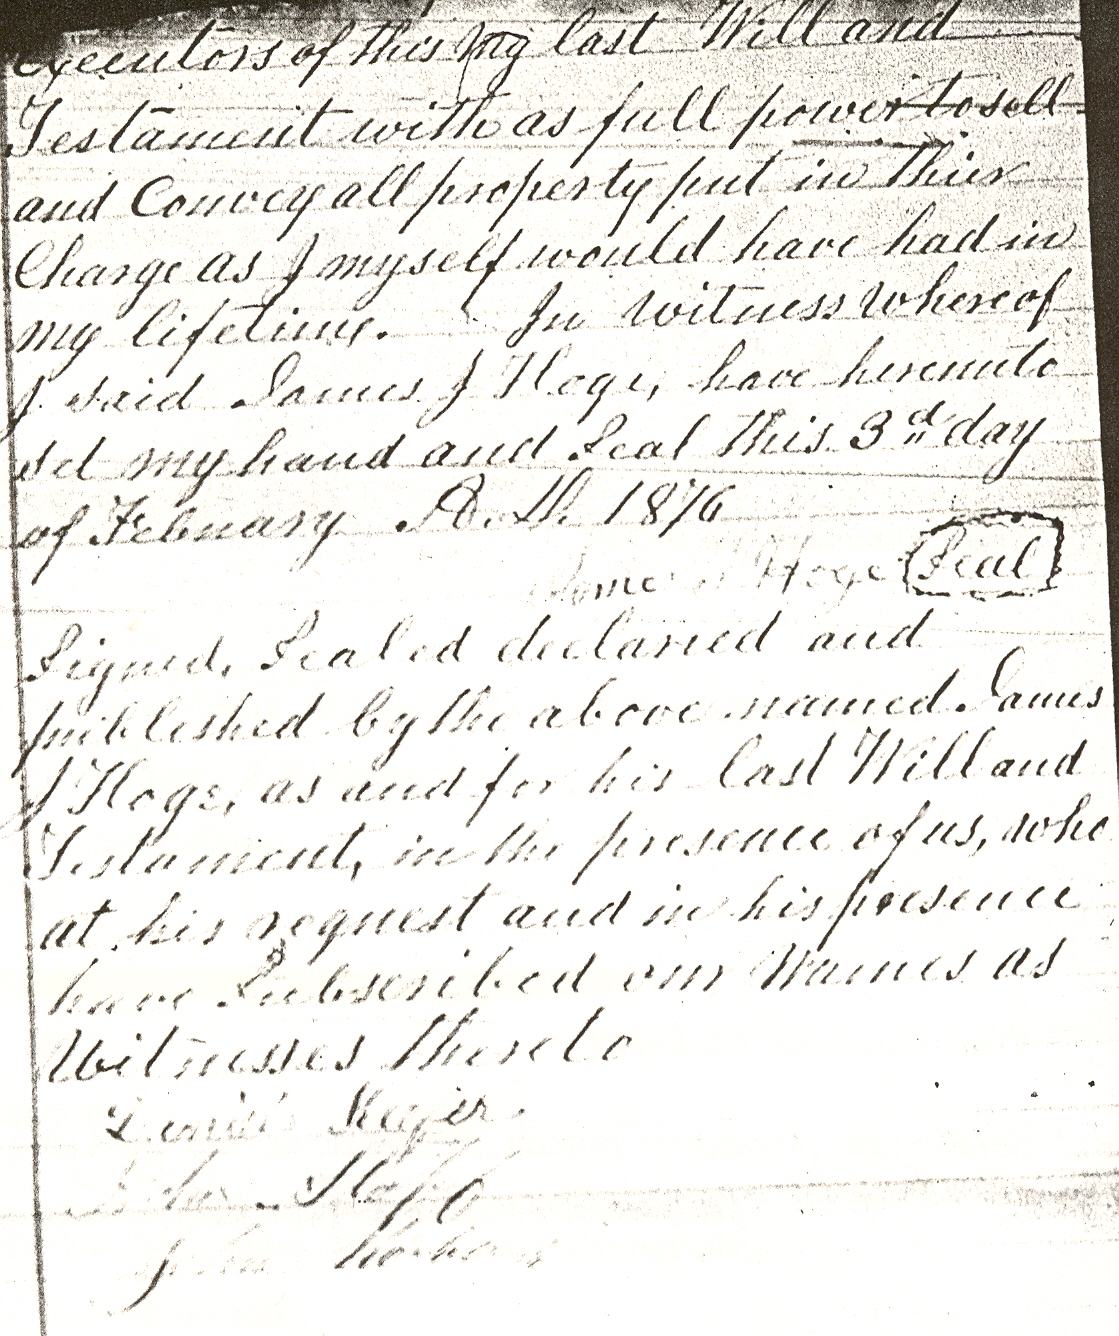 executors of this my last Will and
Testament with as full power to sell
and Convey all property put in thier
Charge as I myself would have had in
my lifetime. In Witness Whereof
I said James J Hoge, have hereunto
set my hand and Seal this 3rd day
of Febuary A.D. 1876
Hoge Seal
Signed, Sealed declared and
published by the above named James
J Hoge, as and for his last Will and
Testament, in the presence of us, who
at his request and in his presence
have Subscribed our Names as
Witnesses thereto